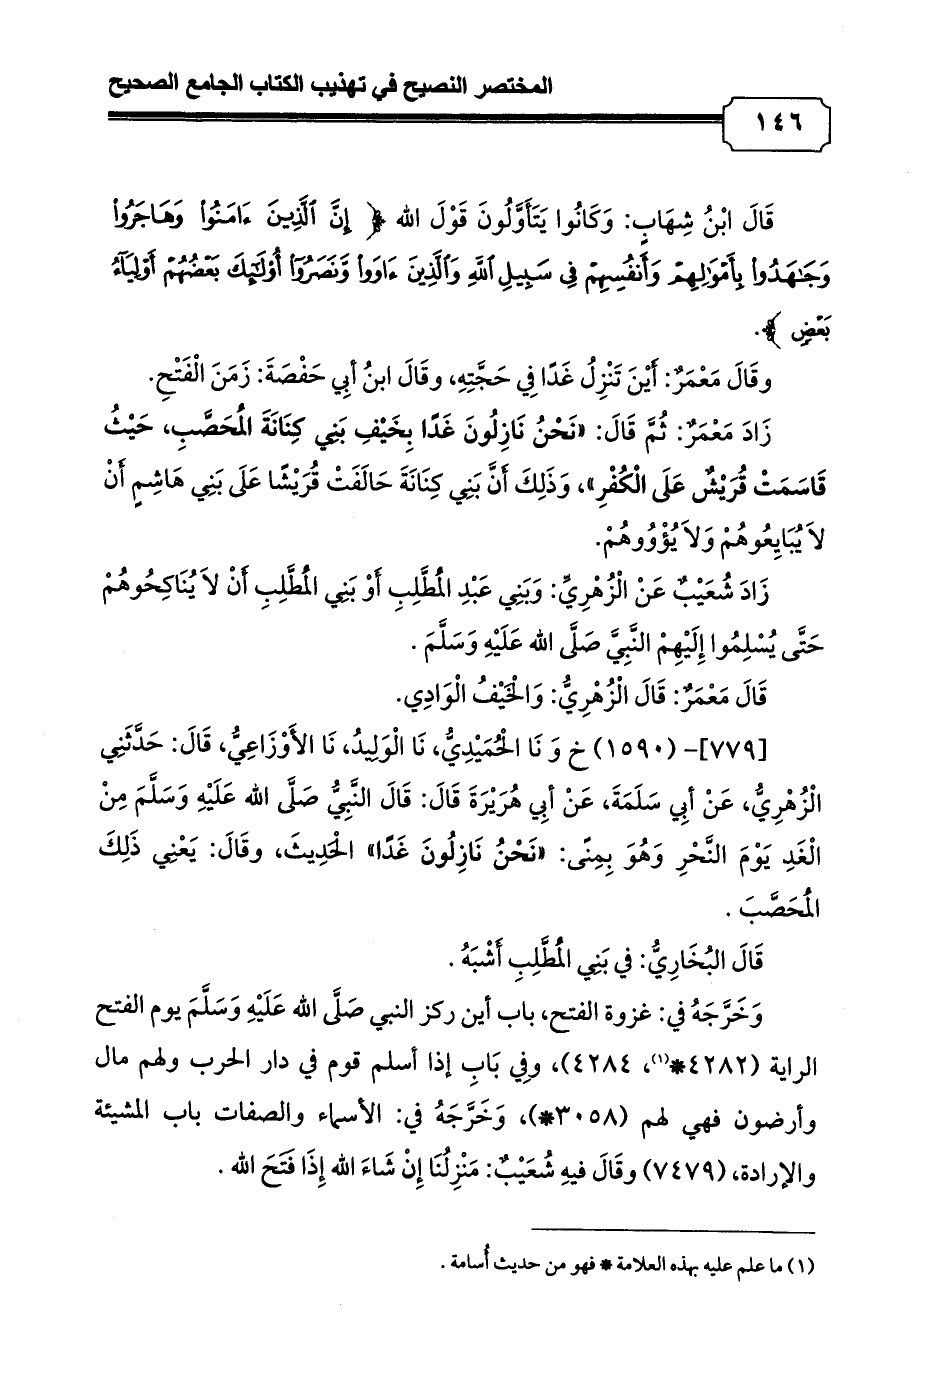 المختصر النصيح في تهذيب الكتاب الجامع الصحيح
١٤٦
قَالَ ابْنُ شِهَابٍ: وَكَانُوا يَتَأَوَّلُونَ قَوْلَ الله ﴿ إِنَّ ٱلَّذِينَ ءَامَنُوا۟ وَهَاجَرُوا۟
وَجَـٰهَدُوا۟ بِأَمْوَٰلِهِمْ وَأَنفُسِهِمْ فِى سَبِيلِ ٱللَّهِ وَٱلَّذِينَ ءَاوَوا۟ وَّنَصَرُوٓا۟ أُو۟لَـٰٓئِكَ بَعْضُهُمْ أَوْلِيَآءُ
بَعْضٍ ﴾.
وقَالَ مَعْمَرٌ: أَيْنَ تَنْزِلُ غَدًا فِي حَجَّتِهِ، وقَالَ ابنُ أبي حَفْصَةَ: زَمَنَ الْفَتْحِ.
زَادَ مَعْمَرٌ: ثُمَّ قَالَ: «نَحْنُ نَازِلُونَ غَدًا بِخَيْفِ بَنِي كِنَانَةَ المُحَصَّبِ، حَيْثُ
قَاسَمَتْ قُرَيْشٌ عَلَى الْكُفْرِ»، وَذَلِكَ أَنَّ بَنِي كِنَانَةَ حَالَفَتْ قُرَيْشًا عَلَى بَنِي هَاشِمٍ أَنْ
لاَ يُبَايِعُوهُمْ وَلاَ يُؤْوُوهُمْ.
زَادَ شُعَيْبٌ عَنْ الْزُهْرِيِّ: وَبَنِي عَبْدِ المُطَّلِبِ أَوْ بَنِي المُطَّلِبِ أَنْ لاَ يُنَاكِحُوهُمْ
حَتَّى يُسْلِمُوا إِلَيْهِمْ النَّبِيَّ صَلَّى الله عَلَيْهِ وَسَلَّمَ .
قَالَ مَعْمَرٌ: قَالَ الْزُهْرِيُّ: وَالْخَيْفُ الْوَادِي.
[٧٧٩]- (١٥٩٠) خ وَ نَا الْحُمَيْدِيُّ، نَا الْوَلِيدُ، نَا الأَوْزَاعِيُّ، قَالَ: حَدَّثَنِي
الْزُهْرِيُّ، عَنْ أبِي سَلَمَةَ، عَنْ أبِي هُرَيْرَةَ قَالَ: قَالَ النَّبِيُّ صَلَّى الله عَلَيْهِ وَسَلَّمَ مِنْ
الْغَدِ يَوْمَ النَّحْرِ وَهُوَ بِمِنًى: «نَحْنُ نَازِلُونَ غَدًا» الْحَدِيثَ، وقَالَ: يَعْنِي ذَلِكَ
المُحَصَّبَ .
قَالَ البُخَارِيُّ: فِي بَنِي المُطَّلِبِ أَشْبَهُ .
وَخَرَّجَهُ فِي: غزوة الفتح، باب أين ركز النبي صَلَّى الله عَلَيْهِ وَسَلَّمَ يوم الفتح
الراية (٤٢٨٢*(١)، ٤٢٨٤)، وفِي بَابِ إذا أسلم قوم في دار الحرب ولهم مال
وأرضون فهي لهم (٣٠٥٨*)، وَخَرَّجَهُ فِي: الأسماء والصفات باب المشيئة
والإرادة، (٧٤٧٩) وقَالَ فيهِ شُعَيْبٌ: مَنْزِلُنَا إنْ شَاءَ الله إذَا فَتَحَ الله .
(١) ما علم عليه بهذه العلامة * فهو من حديث أُسامة .